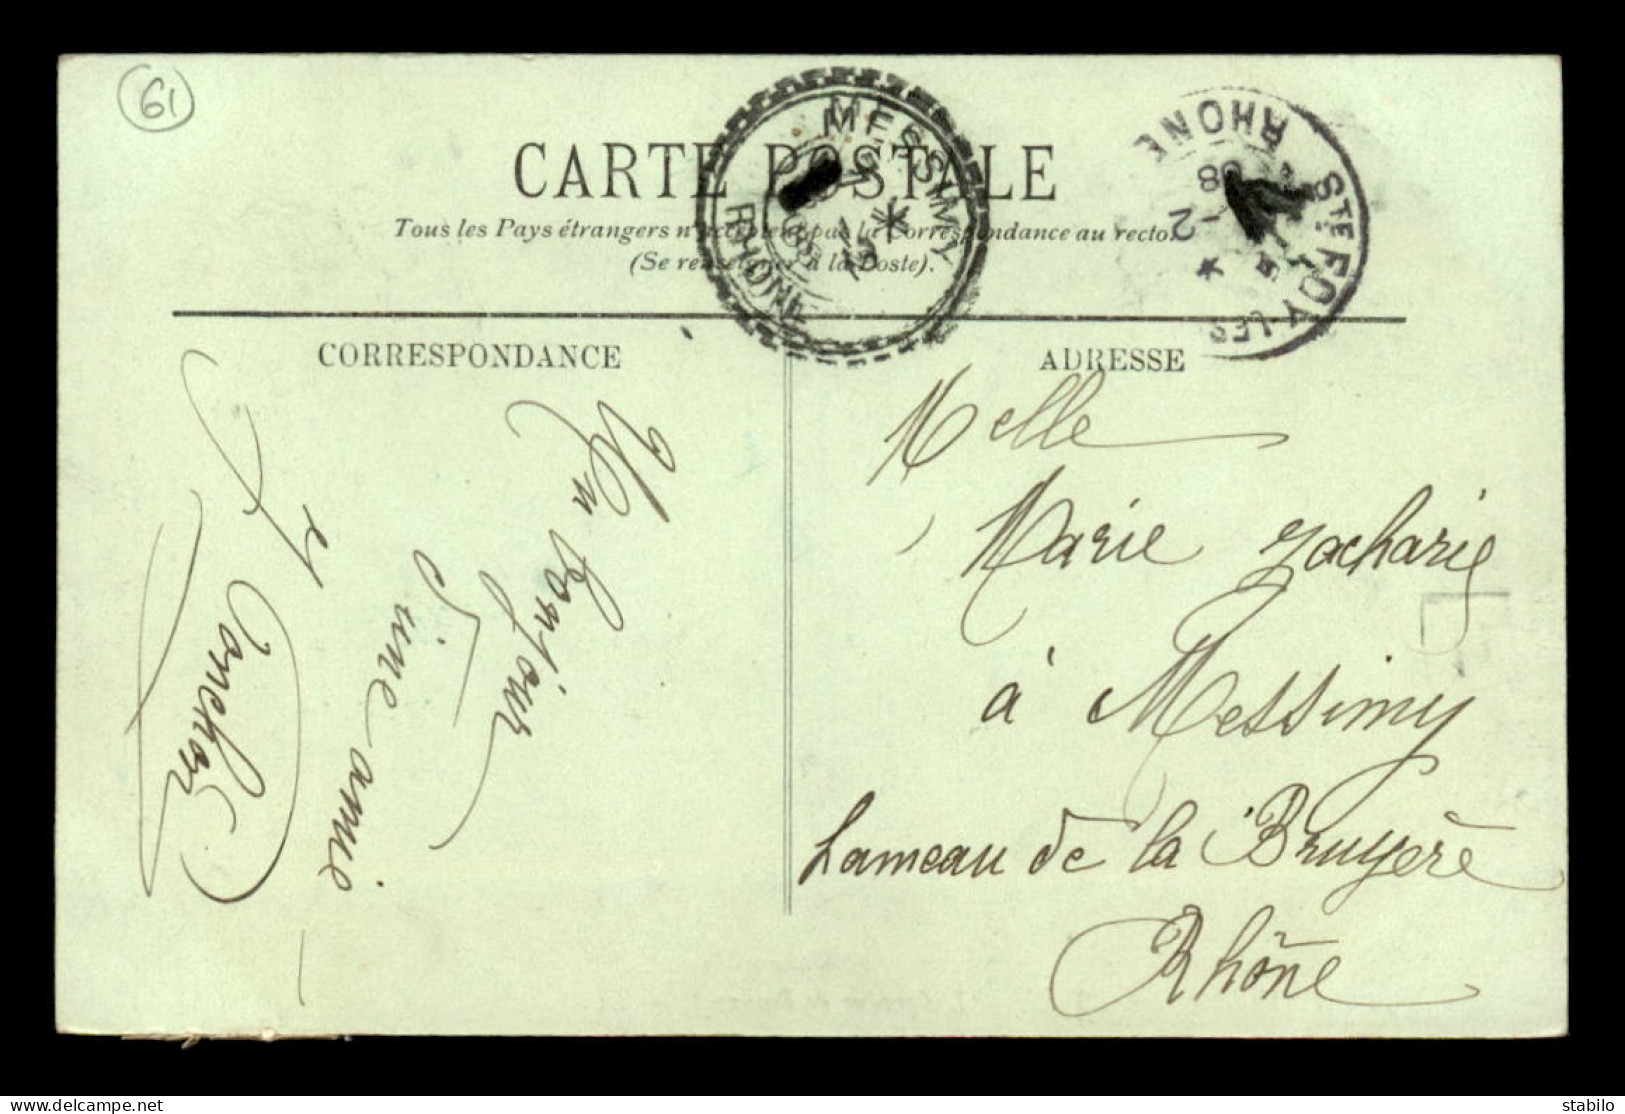 61
CARTE POSTALE
Tous les Pays étrangers n'acceptent pas la Correspondance au recto.
(Se renseigner à la Poste).
MESSIMY
RHONE
STE FOY-LES
RHONE
CORRESPONDANCE
ADRESSE
Un bonjour
d'une amie
Y
Melle
Marie Zacharie
à Messimy
hameau de la Bruyere
Rhône
delcampe.net
stabilo